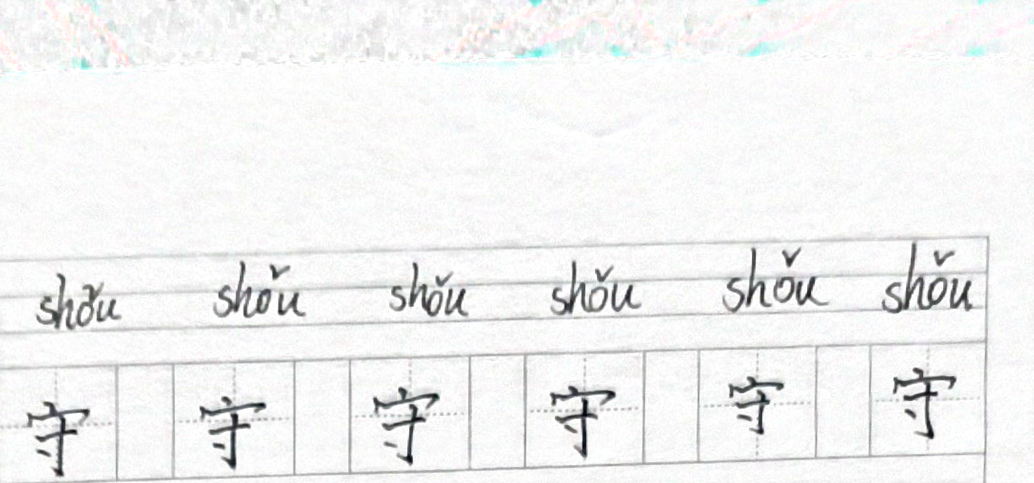 shǒu shǒu shǒu shǒu shǒu shǒu
守 守 守 守 守 守